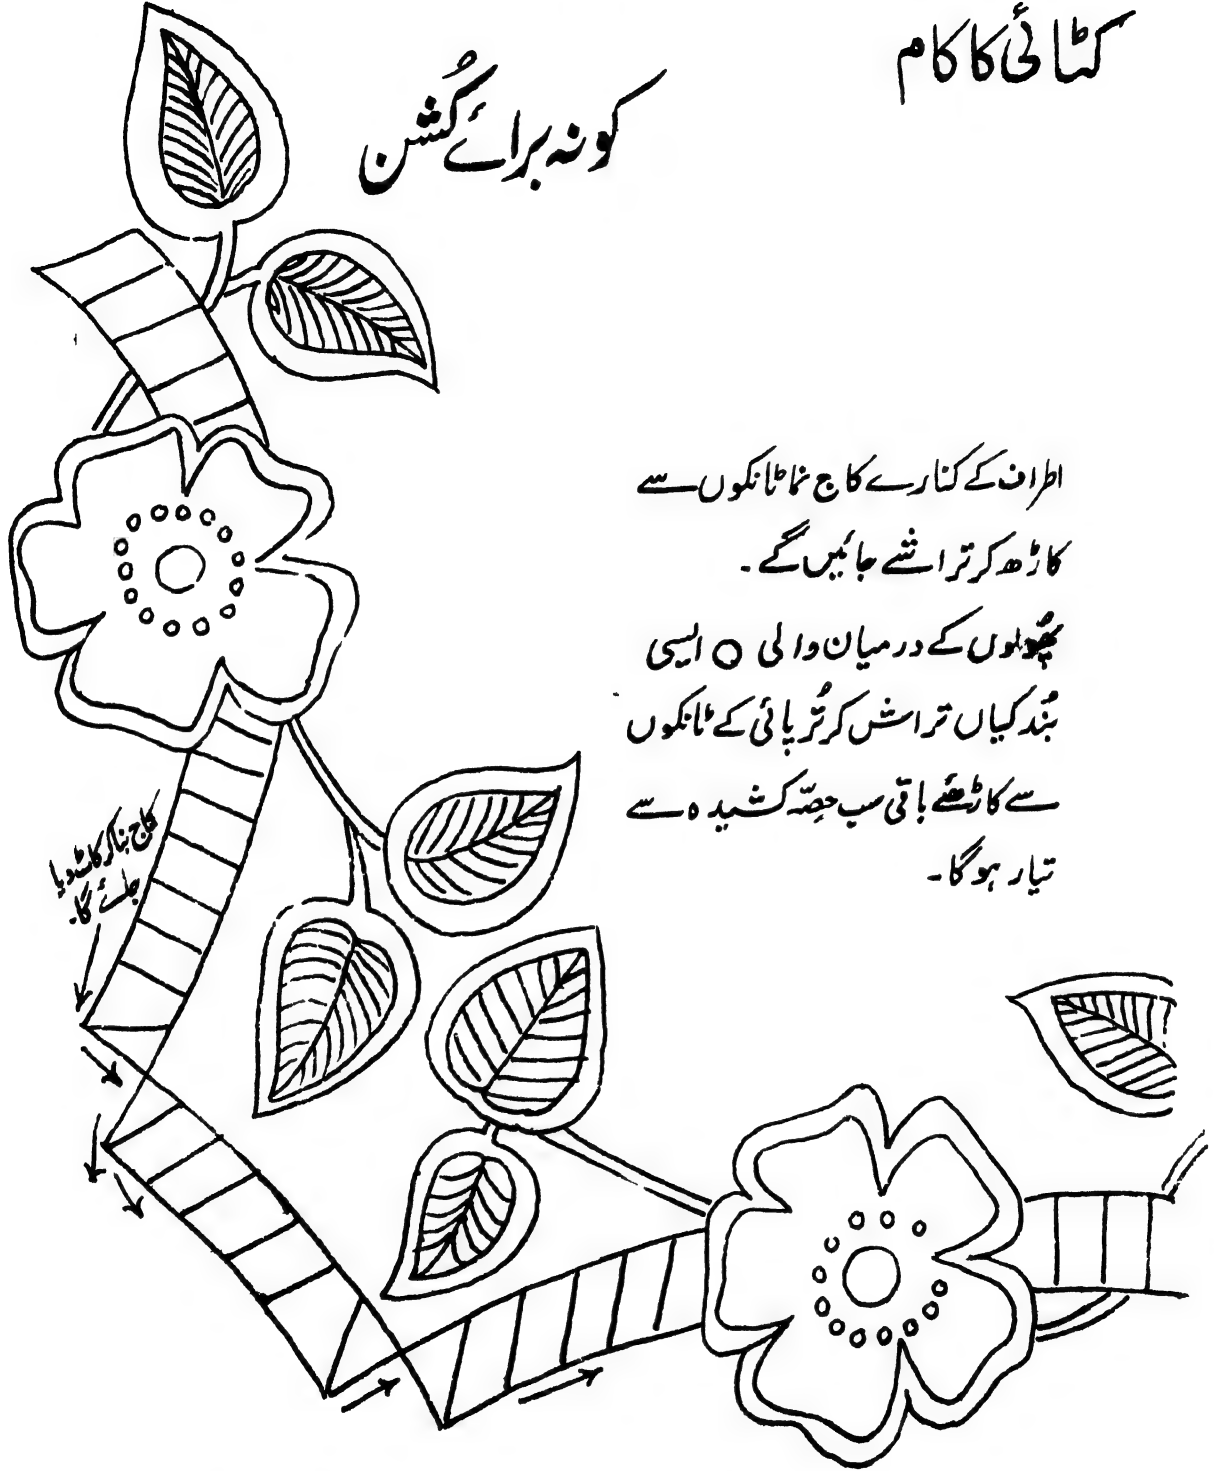 کٹائی کا کام
کونہ برائے کُشن
اطراف کے کنارے کاج نما ٹانکوں سے
کاڑھ کر تراشے جائیں گے۔
پھُولوں کے درمیان والی O ایسی
بُندکیاں تراش کر تُرپائی کے ٹانکوں
سے کاڑھئے باقی سب حصّہ کشیدہ سے
تیار ہو گا۔
کاج بنا کر کاٹ دیا
جائے گا۔